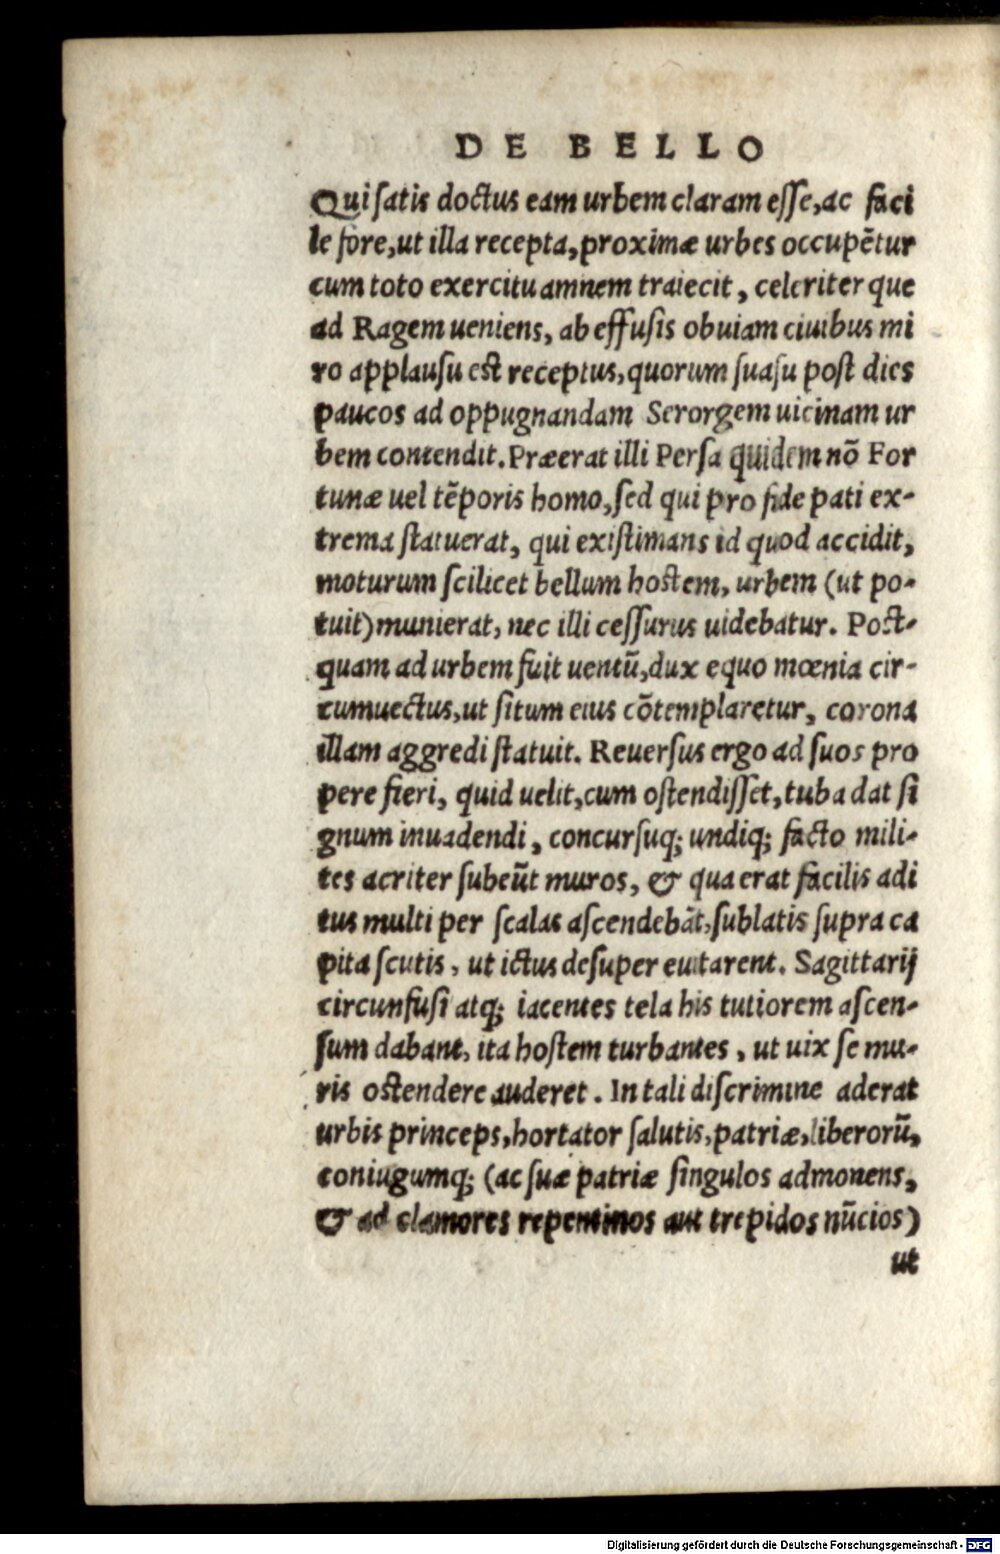 DE BELLO
Qui satis doctus eam urbem claram esse, ac faci
le fore, ut illa recepta, proximæ urbes occupẽtur
cum toto exercitu amnem traiecit, celeriter que
ad Ragem ueniens, ab effusis obuiam ciuibus mi
ro applausu est receptus, quorum suasu post dies
paucos ad oppugnandam Serorgem uicinam ur
bem contendit. Præerat illi Persa quidem nõ For
tunæ uel tẽporis homo, sed qui pro fide pati ex-
trema statuerat, qui existimans id quod accidit,
moturum scilicet bellum hostem, urbem (ut po-
tuit) munierat, nec illi cessurus uidebatur. Post-
quam ad urbem fuit uentũ, dux equo mœnia cir-
cumuectus, ut situm eius cõtemplaretur, corona
illam aggredi statuit. Reuersus ergo ad suos pro
pere fieri, quid uelit, cum ostendisset, tuba dat si
gnum inuadendi, concursuq; undiq; facto mili-
tes acriter subeũt muros, & qua erat facilis adi
tus multi per scalas ascendebãt, sublatis supra ca
pita scutis, ut ictus desuper euitarent. Sagittarij
circunfusi atq; iacentes tela his tutiorem ascen-
sum dabant, ita hostem turbantes, ut uix se mu-
ris ostendere auderet. In tali discrimine aderat
urbis princeps, hortator salutis, patriæ, liberorũ,
coniugumq; (ac suæ patriæ singulos admonens,
& ad clamores repentinos aut trepidos nũcios)
ut
Digitalisierung gefördert durch die Deutsche Forschungsgemeinschaft - DFG